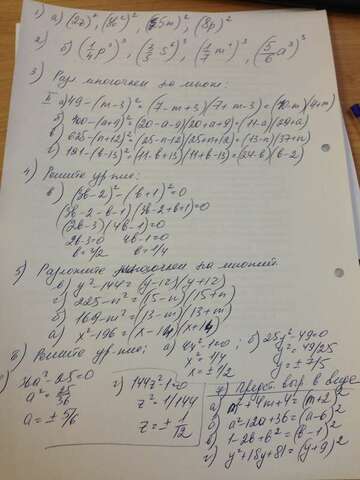 1) а) (2z)², (3k²)², (5m)², (8p)²
2) б) (1/4 p²)³, (2/3 s²)³, (1/7 m²)³, (5/6 a)³
3) Разл многочлен на множ:
а) 49-(m-3)²=(7-m+3)(7+m-3)=(10-m)(4+m)
б) 400-(a+9)²=(20-a-9)(20+a+9)=(11-a)(29+a)
в) 625-(n+12)²=(25-n-12)(25+n+12)=(13-n)(37+n)
121-(b-13)²=(11-b+13)(11+b-13)=(24-b)(b-2)
4) Решите ур-ние:
в) (3b-2)²-(b+1)²=0
(3b-2-b-1)(3b-2+b+1)=0
(2b-3)(4b-1)=0
2b-3=0 4b-1=0
b=3/2 b=1/4
5) Разложите многочлен на множит.
y²-144=(y-12)(y+12)
г) 225-n²=(15-n)(15+n)
б) 169-m²=(13-m)(13+m)
а) x²-196=(x-14)(x+14)
Решите ур-ние: а) 4x²-1=0 б) 25y²-49=0
x²=1/4 y²=49/25
x=±1/2 y=±7/5
36a²-25=0 г) 144z²-1=0
a²=25/36 z²=1/144
a=±5/6 z=±1/12
Предст. выр в виде
а) m²+4m+4=(m+2)²
б) a²-12a+36=(a-6)²
в) 1-2b+b²=(b-1)²
г) y²+18y+81=(y+9)²